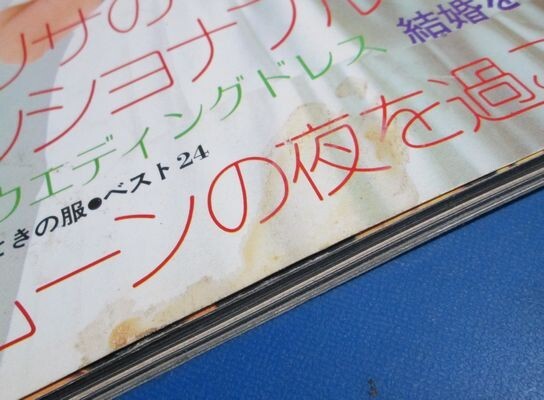 ンサの
ッショナブル
ウエディングドレス
結婚を
ときの服●ベスト24
ムーンの夜を過ご